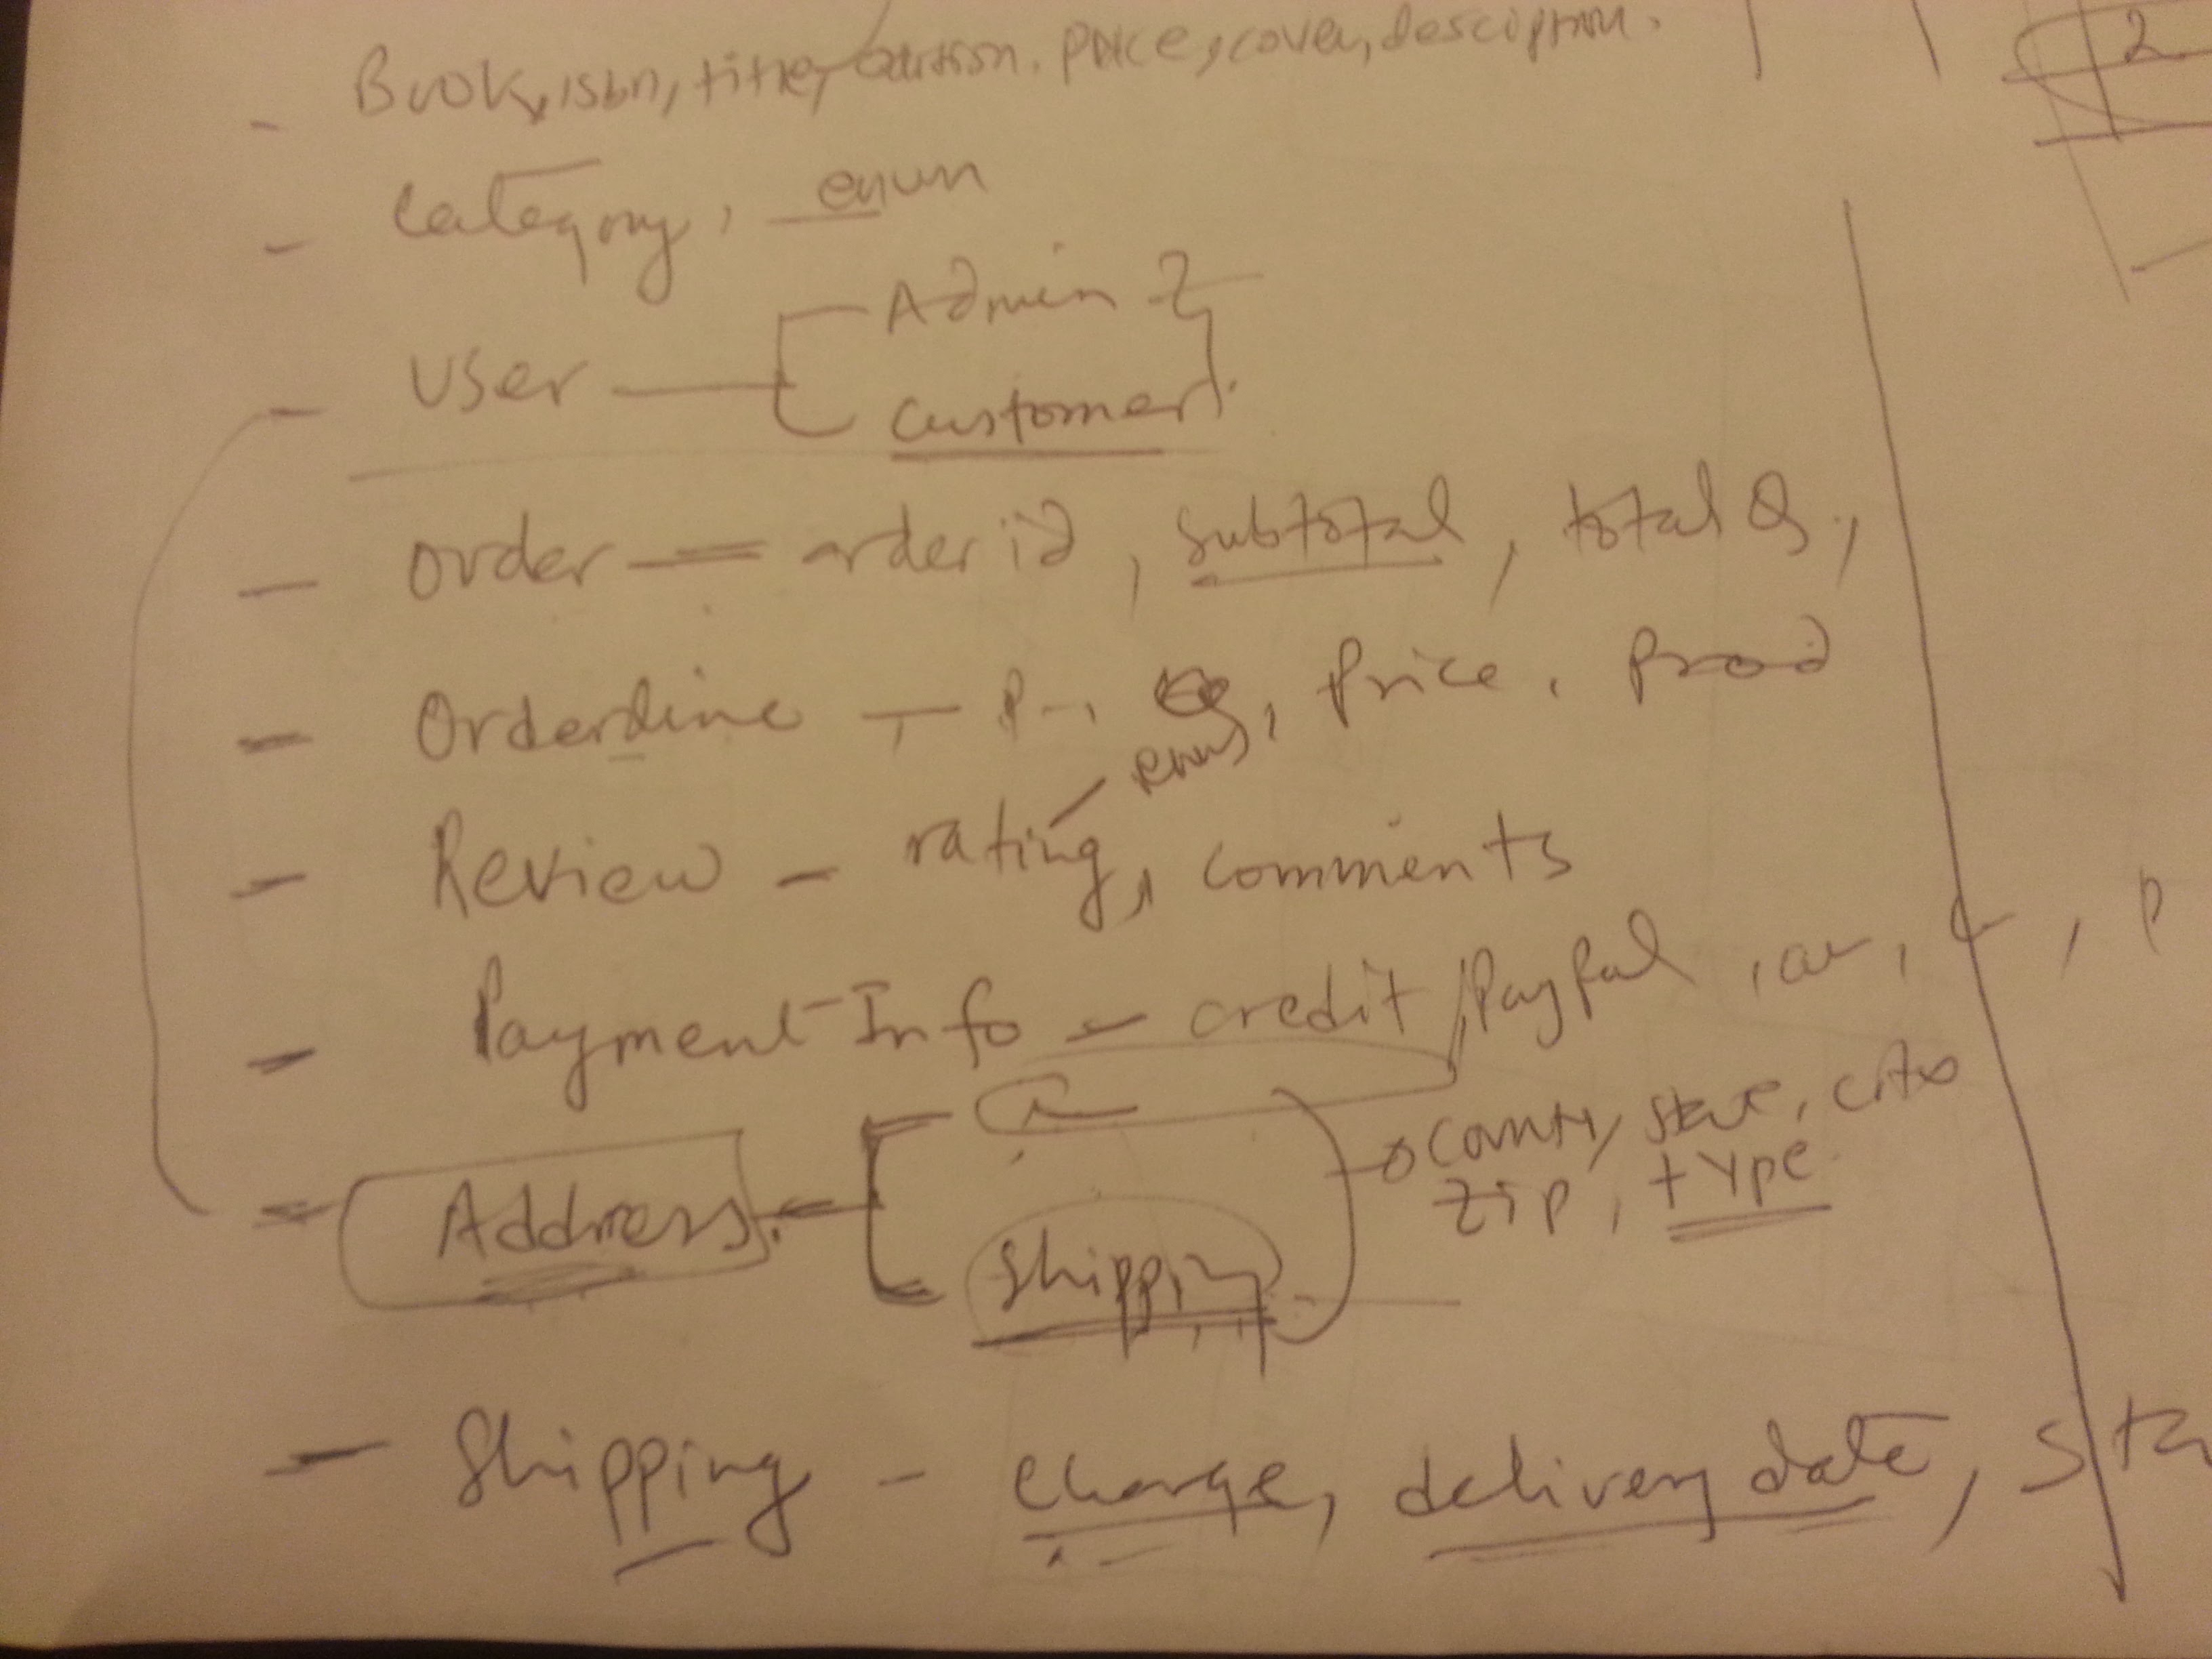 2
- Book, isbn, title, edition. price, cover, description.
- Category, enum
- User — Admin
Customer
- order — order id, subtotal, total Q,
- OrderLine — P-, Price, Prod
- Review - rating, comments
- Payment Info - credit, Paypal
- Address - Shipping
State,
zip, type
- Shipping - charge, delivery date,